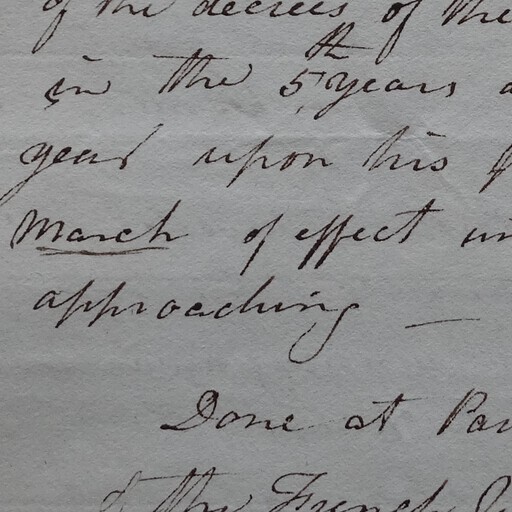 of the decrees of the
in the 5th years
year upon his
March of effect
approaching —
Done at
of the French